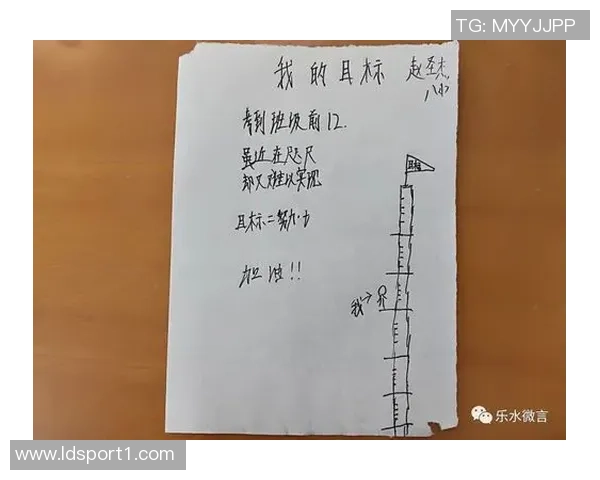 TG: MYYJJPP
我的目标 赵圣杰
考到班级前12.
虽近在咫尺
却又难以实现
目标=努力
加油!!
目标
我→
乐水微言
www.ldsport1.com